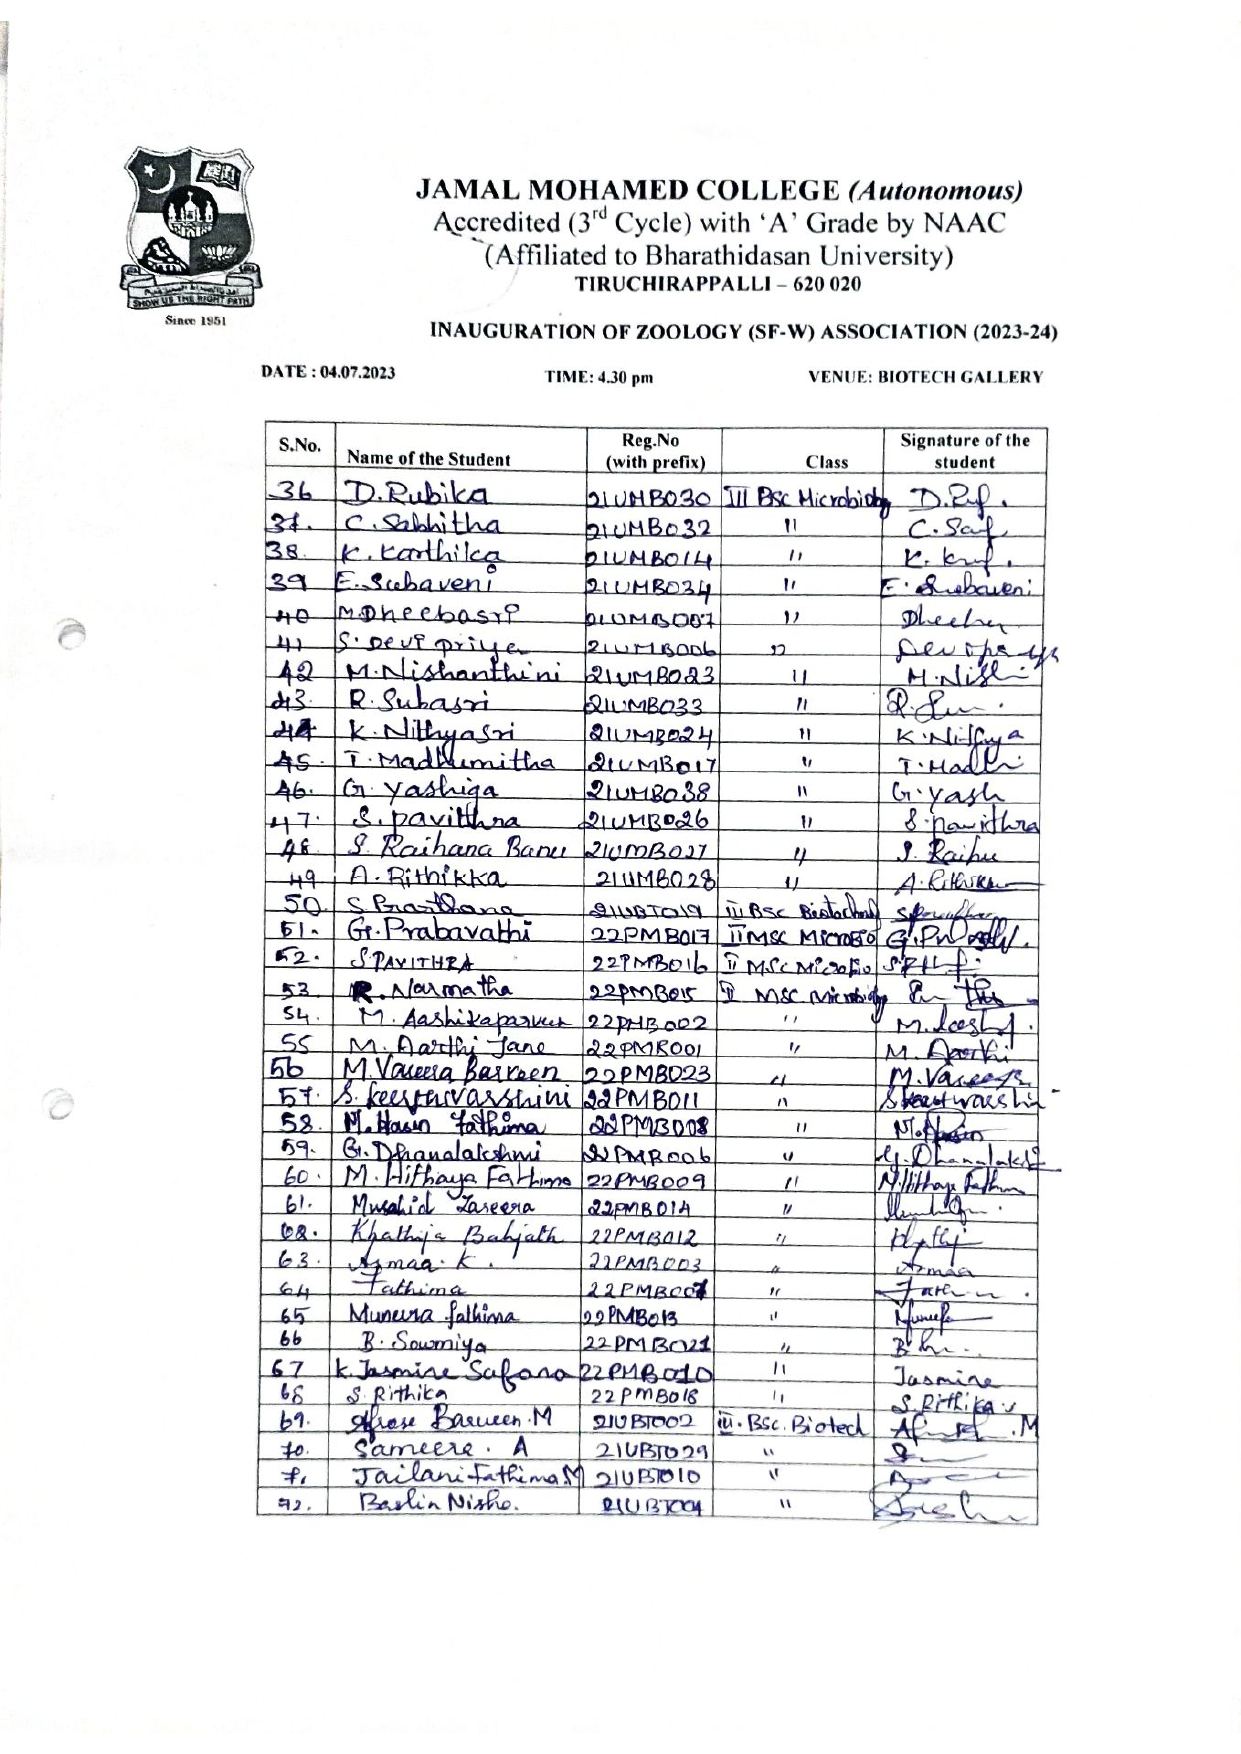 SHOW US THE RIGHT PATH
Since 1951
JAMAL MOHAMED COLLEGE (Autonomous)
Accredited (3rd Cycle) with ‘A’ Grade by NAAC
(Affiliated to Bharathidasan University)
TIRUCHIRAPPALLI – 620 020
INAUGURATION OF ZOOLOGY (SF-W) ASSOCIATION (2023-24)
DATE : 04.07.2023 TIME: 4.30 pm VENUE: BIOTECH GALLERY
S.No. Name of the Student Reg.No (with prefix) Class Signature of the student
36 D.Rubika 21UMB030 III BSc Microbiology
37. C. Sabhitha 21UMB032 " C. Saf
38. K. Karthika 21UMB014 "
39 E. Subaveni 21UMB034 " E. Subaveni
40 M.Dheebasri 21UMB007 "
41 S. Devi priya 21UMB006 " Devi priya
42 M.Nishanthini 21UMB023 " M.Nish
43. R. Subasri 21UMB033 "
44 K. Nithyasri 21UMB024 " K.Nithya
45. T. Madhumitha 21UMB017 " T. Madhi
46. G. Yashiga 21UMB038 " G. Yash
47. S. Pavithra 21UMB026 " S. Pavithra
48. S. Raihana Banu 21UMB027 "
49 A. Rithikka 21UMB028 " A. Rithikka
50. S Prarthana 21UBT019 III BSc Biotechnol
51. G. Prabavathi 22PMB017 II MSC Microbio
52. S PAVITHRA 22PMB016 II MSc Microbio
53 R. Narmatha 22PMB015 II MSC Microbiology
54. M. Aashikaparveen 22PMB002 "
55 M. Aarthi Jane 22PMB001 " M. Aarthi
56 M. Vaseera Barveen 22PMB023 "
57. S. Keerthivarshini 22PMB011 "
58. M. Hasin Fathima 22PMB008 " M. Hasin
59. G. Dhanalakshmi 22PMB006 " G. Dhanalakshmi
60. M. Hithaya Fathima 22PMB009 " M. Hithaya Fathima
61. Musahid Zaseera 22PMB014 "
62. Khathija Bahjath 22PMB012 "
63. Asmaa. K. 22PMB003 " Asmaa
64 Fathima 22PMB007 "
65 Muneera fathima 22PMB013 "
66 B. Sowmiya 22PMB021 "
67 K. Jasmine Safana 22PMB010 " Jasmine
68 S. Rithika 22PMB018 " S. Rithika
69. Afrose Barveen. M 21UBT002 III. BSc. Biotech
70. Sameera. A 21UBT029 "
71. Jailani Fathima M 21UBT010 "
72. Baslin Nisho. 21UBT004 "